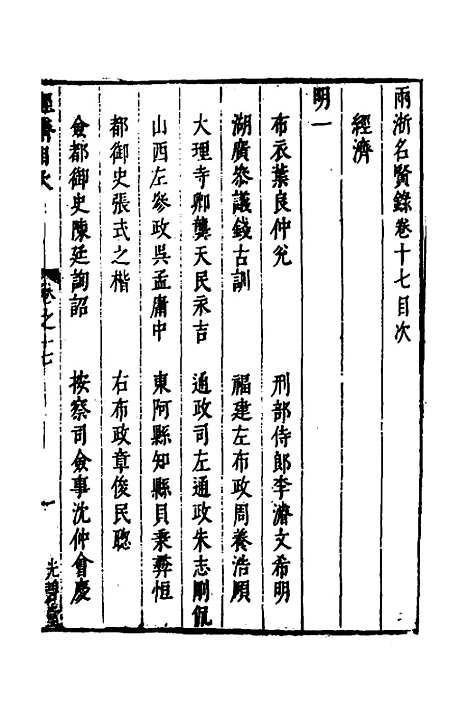 兩浙名賢錄卷十七目次
經濟
明一
布衣葉良仲兌 刑部侍郎李濬文希明
湖廣叅議錢古訓 福建左布政周養浩頤
大理寺卿龔天民永吉 通政司左通政朱志剛侃
山西左參政吳孟庸中 東阿縣知縣貝秉彝恒
都御史張式之楷 右布政章俊民聰
僉都御史陳廷詢詔 按察司僉事沈仲會慶
經濟目次
卷之十七
一
光碧堂